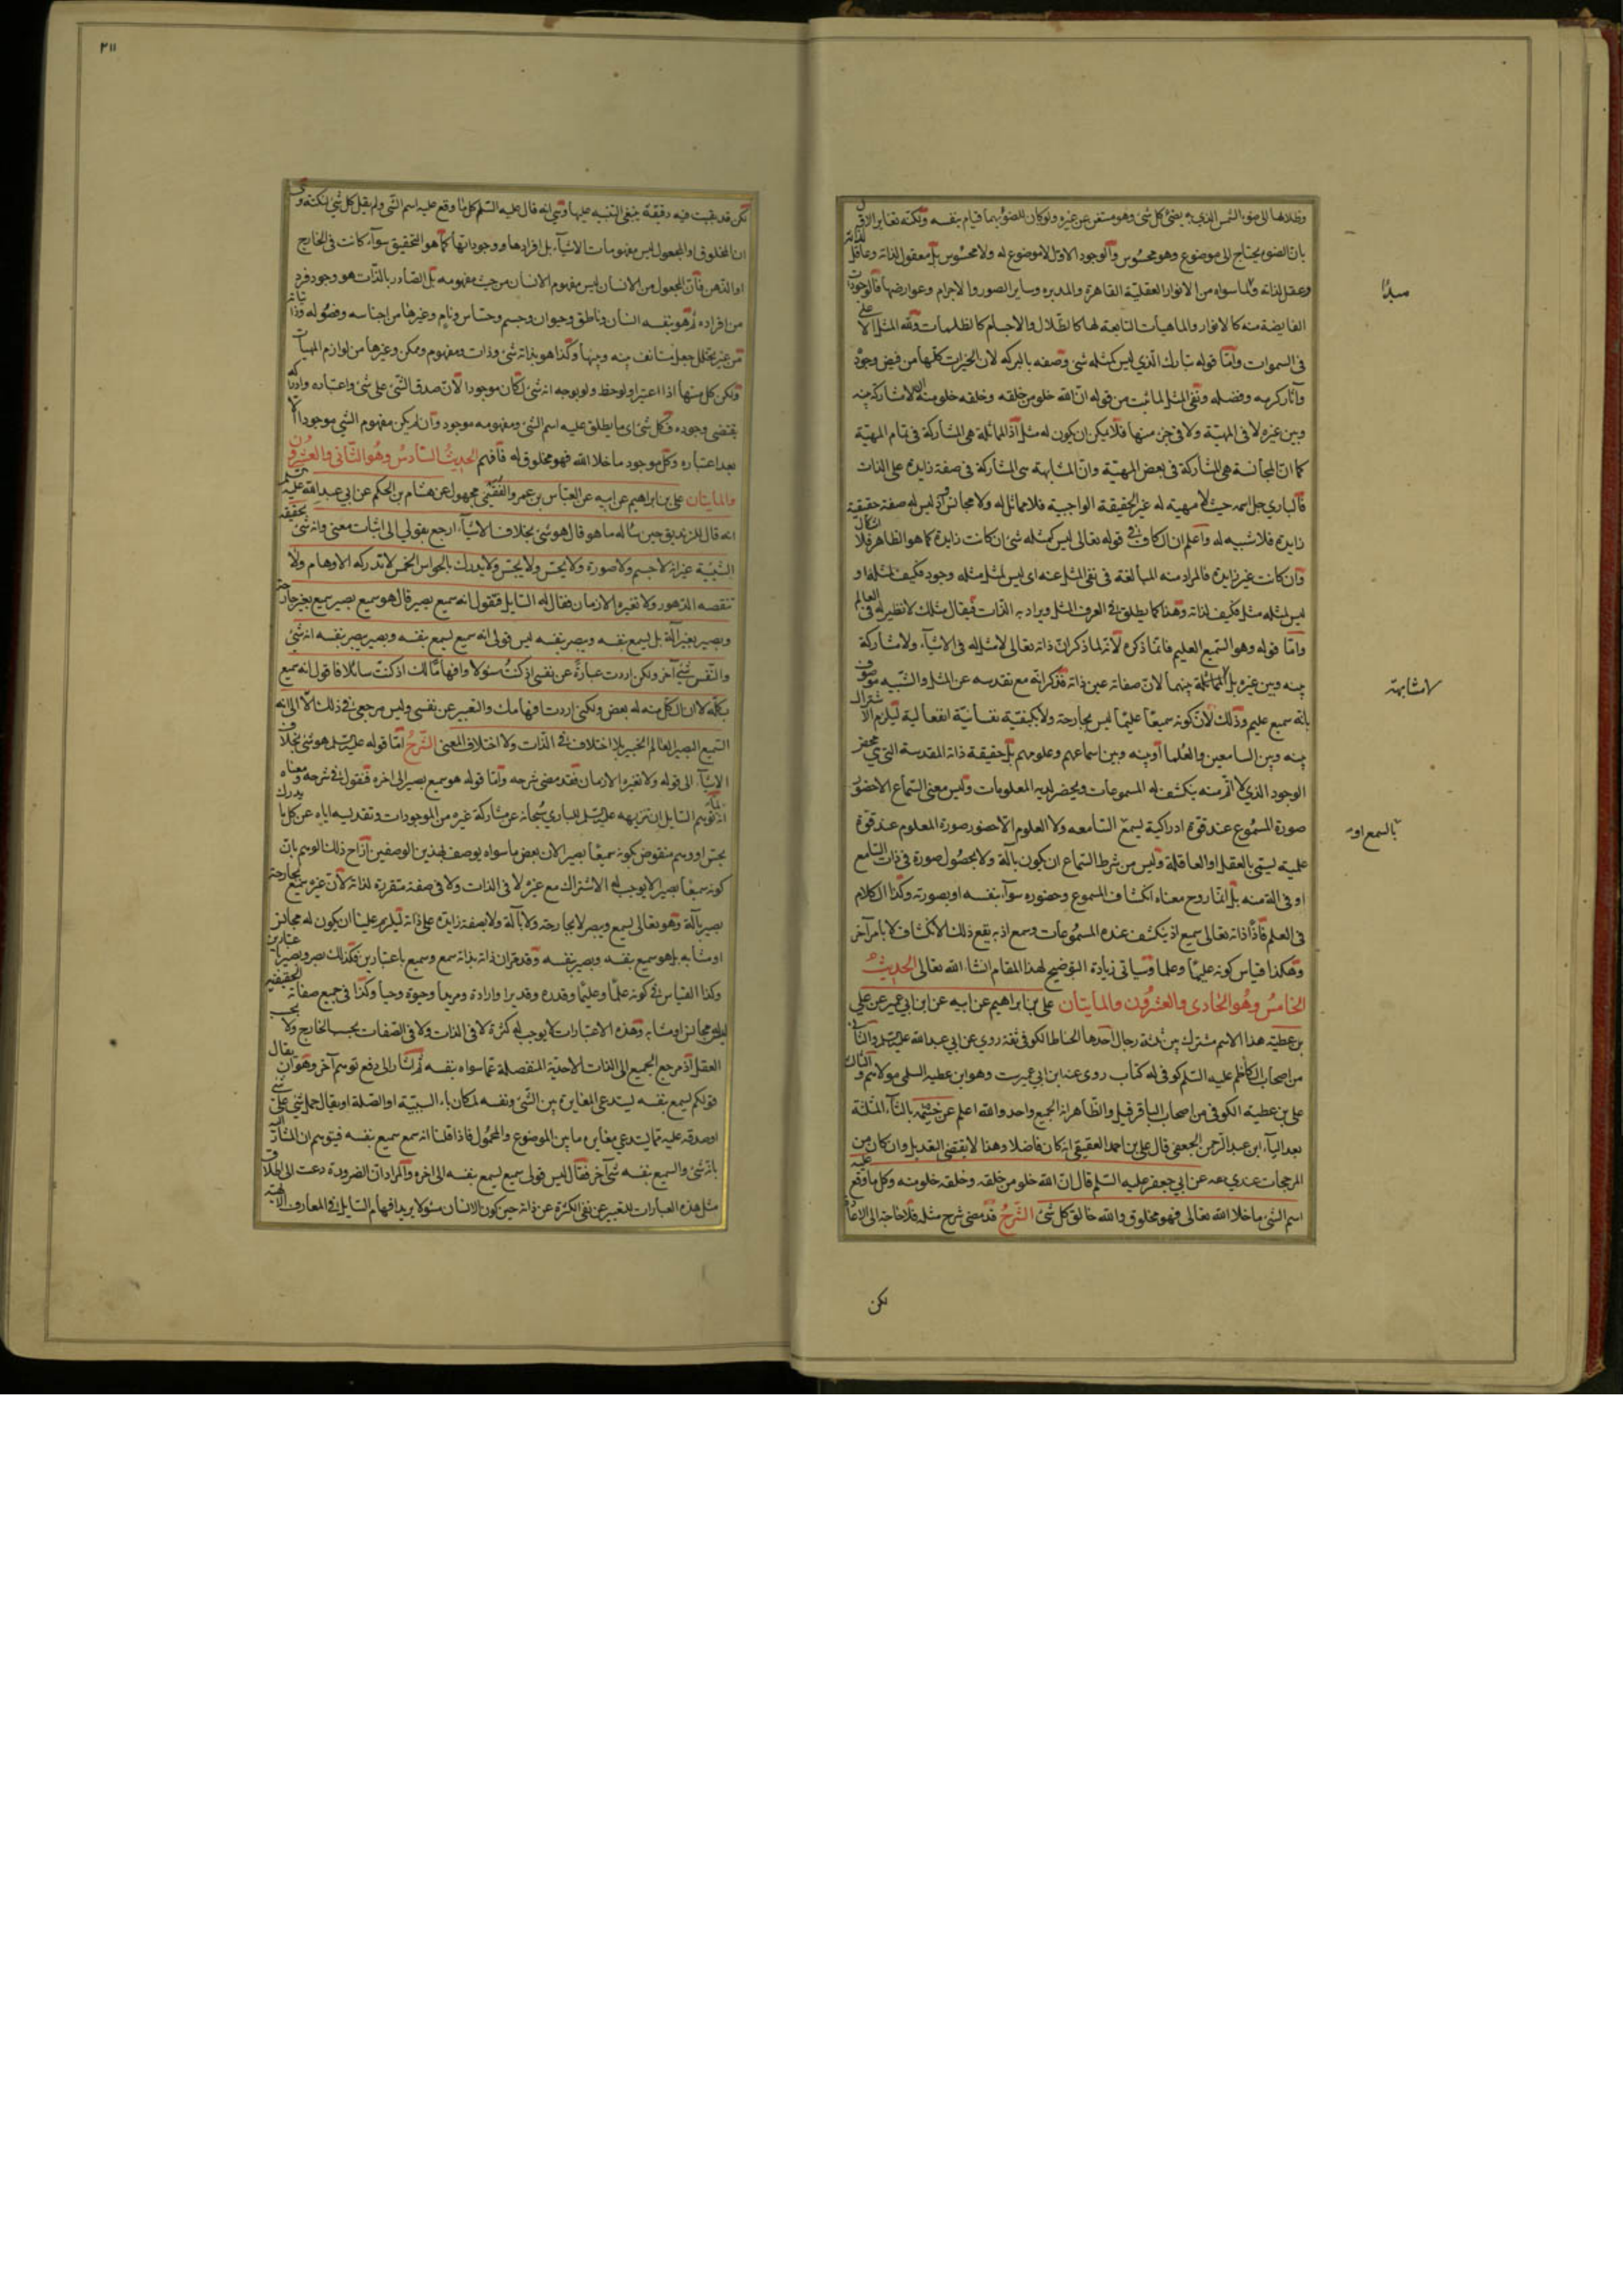 وظلالها الى ضوء الشمس الذى به يضئ كل شئ وهو مستغن عن غيره ولو كان للضوء بها قيام بنفسه ولكنه تغاير الاول
بان الضوء يحتاج الى موضوع وهو محسوس والوجود الاول لا موضوع له ولا محسوس بل معقول لذاته وعاقل لذاته
وعقل لذاته ولما سواه من الانوار العقلية القاهرة والمدبره وساير الصور والاجرام وعوارضها فالوجودات
الفايضة منه كالانوار والماهيات التابعة لها كالظلال والاجسام كالظلمات ولله المثل الاعلى
فى السموات واما قوله تبارك الذي ليس كمثله شئ وصفه بالبركه لان الخيرات كلها من فيض وجوده
وآثار كرمه وفضله ونفى المثل لما ثبت من قوله ان الله خلو من خلقه وخلقه خلو منه لا مشاركة بينه
وبين غيره لا فى المهية ولا فى جزء منها فلا يمكن ان يكون له مثل اذ المماثلة هى المشاركة فى تمام المهية
كما ان المجانسة هى المشاركة فى بعض المهية وان المشابهة هى المشاركة فى صفة زايدة على الذات
فالباري جل اسمه حيث لا مهية له غير الحقيقة الواجبية فلا مماثل له ولا مجانس واذ ليس له صفة حقيقة
زايدة فلا شبيه له واعلم ان الكاف فى قوله تعالى ليس كمثله شئ ان كانت زايدة كما هو الظاهر فلا اشكال
وان كانت غير زايدة فالمراد منه المبالغة فى نفى المثل عنه اى ليس لمثل مثله وجود فكيف لمثله او
ليس لمثله مثل فكيف لذاته وهذا كما يطلق فى العرف المثل ويراد به الذات فيقال مثلك لا نظير له فى العالم
واما قوله وهو السميع العليم فانما ذكره لانه لما ذكر ان ذاته تعالى لا مثل له فى الاشياء ولا مشاركة
بينه وبين غيره بل لا مماثلة بينهما لان صفاته عين ذاته فذكر انه مع تقدسه عن المثل والشبيه موصوف
بانه سميع عليم وذلك لان كونه سميعا عليما ليس بجارحة ولا بكيفية نفسانية انفعالية ليلزم الاشتراك
بينه وبين السامعين والعلماء او بينه وبين اسماعهم وعلومهم بل حقيقة ذاته المقدسة التى هى محض
الوجود الذي لا اتم منه ينكشف له المسموعات ويحضر لديه المعلومات وليس معنى السماع الا حضور
صورة المسموع عند قوة ادراكية يسمى السامعه ولا العلوم الا حضور صورة المعلوم عند قوة
علمية يسمى بالعقل او العاقلة وليس من شرط السماع ان يكون بآلة ولا بحصول صورة فى ذات السامع
او فى آلة منه بل انما روح معناه انكشاف المسموع وحضوره سواء بنفسه او بصورته وكذا الكلام
فى العلم فاذا ذاته تعالى سميع اذ ينكشف عنده المسموعات وسمع اذ به يقع ذلك الانكشاف لا بامر آخر
وهكذا قياس كونه عليما وعلما وسياتى زيادة التوضيح لهذا المقام انشاء الله تعالى الحديث
الخامس وهو الحادى والعشرون والمايتان على بن ابراهيم عن ابيه عن ابن ابي عمير عن علي
بن عطية هذا الاسم مشترك بين ثلثة رجال احدها الحناط الكوفى ثقة روي عن ابي عبد الله عليه السلم والثانى
من اصحاب الكاظم عليه السلم كوفى له كتاب روى عنه ابن ابي عمير وهو ابن عطيه السلمي مولاهم والثالث
على بن عطيه الكوفى من اصحاب الباقر قيل والظاهر ان الجميع واحد والله اعلم عن خيثمه بالثاء المثلثة
بعد الياء ابن عبد الرحمن الجعفي قال على بن احمد العقيقي انه كان فاضلا وهذا لا يقتضى التعديل وان كان من
المرجحات عندي صه عن ابي جعفر عليه السلم قال ان الله خلو من خلقه وخلقه خلو منه وكل ما وقع عليه
اسم الشئ ما خلا الله تعالى فهو مخلوق والله خالق كل شئ الشرح قد مضى شرح مثله فلا حاجة الى الاعادة
لكن
مبدأ
لا مشابهة
بالسمع او
٢١١
لكن قد بقيت فيه دقيقة ينبغى التنبيه عليها وهى انه قال عليه السلم كل ما وقع عليه اسم الشئ ولم يقل كل شئ لنكتة وهى
ان المخلوق او المجعول ليس مفهومات الاشياء بل افرادها ووجوداتها كما هو التحقيق سواء كانت فى الخارج
او الذهن فان المجعول من الانسان ليس مفهوم الانسان من حيث مفهومه بل الصادر بالذات هو وجود فرد
من افراده ثم هو بنفسه انسان وناطق وحيوان وجسم وحساس ونام وغيرها من اجناسه وفصوله وذاتياته
من غير تخلل جعل مستانف بينه وبينها وكذا هو بذاته شئ وذات ومفهوم وممكن وغيرها من لوازم المهيات
ولكن كل منها اذا اعتبر او لوحظ ولو بوجه انه شئ لكان موجودا لان صدق الشئ على شئ واعتباره وادراكه
يقتضى وجوده فكل شئ اى ما يطلق عليه اسم الشئ ومفهومه موجود وان لم يكن مفهوم الشئ موجودا الا
بعد اعتباره وكل موجود ما خلا الله فهو مخلوق له فافهم الحديث السادس وهو الثانى والعشرون
والمايتان على بن ابراهيم عن ابيه عن العباس بن عمرو الفقيمى مجهول عن هشام بن الحكم عن ابي عبد الله عليه السلم
انه قال للزنديق حين ساله ما هو قال هو شئ بخلاف الاشياء ارجع بقولي الى اثبات معنى وانه شئ بحقيقة
الشيئية غير انه لا جسم ولا صورة ولا يحس ولا يجس ولا يدرك بالحواس الخمس لا تدركه الاوهام ولا
تنقصه الدهور ولا تغيره الازمان فقال له السايل فتقول انه سميع بصير قال هو سميع بصير سميع بغير جارحة
وبصير بغير آلة بل يسمع بنفسه ويبصر بنفسه ليس قولى انه سميع يسمع بنفسه وبصير يبصر بنفسه انه شئ
والنفس شئ آخر ولكن اردت عبارة عن نفسى اذ كنت مسئولا وافهاما لك اذ كنت سائلا فاقول انه سميع
بكله لا ان الكل منه له بعض ولكنى اردت افهامك والتعبير عن نفسى وليس مرجعى فى ذلك الا الى انه
السميع البصير العالم الخبير بلا اختلاف فى الذات ولا اختلاف المعنى الشرح اما قوله عليه السلم هو شئ بخلاف
الاشياء الى قوله ولا تغيره الازمان فقد مضى شرحه واما قوله هو سميع بصير الى اخره فنقول فى شرحه ومعناه
انه لما توهم السايل ان تنزيهه عليه السلم للباري سبحانه عن مشاركة غيره من الموجودات وتقديسه اياه عن كل ما يدرك
بحس او وهم منقوض بكونه سميعا بصيرا لان بعض ما سواه يوصف بهذين الوصفين ازاح ذلك الوهم بان
كونه سميعا بصيرا لا يوجب له الاشتراك مع غيره لا فى الذات ولا فى صفة متقررة لذاته لان غيره سميع بجارحة
بصير بآلة وهو تعالى يسمع ويبصر لا بجارحة ولا بآلة ولا بصفة زايدة على ذاته ليلزم علينا ان يكون له مجانس
او مشابه بل هو سميع بنفسه وبصير بنفسه وقد مر ان ذاته بذاته سمع وسميع باعتبارين فكذلك بصر وبصير باعتبارين
وكذا القياس فى كونه علما وعليما وقدرة وقديرا وارادة ومريدا وحيوة وحيا وكذا فى جميع صفاته الحقيقية
ليس له مجانس او مشابه وهذه الاعتبارات لا يوجب له كثرة لا فى الذات ولا فى الصفات بحسب الخارج ولا بحسب
العقل اذ مرجع الجميع الى الذات الاحدية المنفصلة عما سواه بنفسه ثم اشار الى دفع توهم آخر وهو ان يقال
قولكم يسمع بنفسه يستدعى المغايرة بين الشئ ونفسه لمكان باء السببية او الصلة او يقال حمل شئ على شئ
او صدقه عليه مما يستدعي مغايرة ما بين الموضوع والمحمول فاذا قلنا انه سمع سميع بنفسه فيتوهم ان المشار اليه
بانه شئ والسميع بنفسه شئ آخر فقال ليس قولى سميع يسمع بنفسه الى اخره والمراد ان الضرورة دعت الى اطلاق
مثل هذه العبارات للتعبير عن نفى الكثرة عن ذاته حين كون الانسان مسئولا يريد افهام السايل فى المعارف الالهية